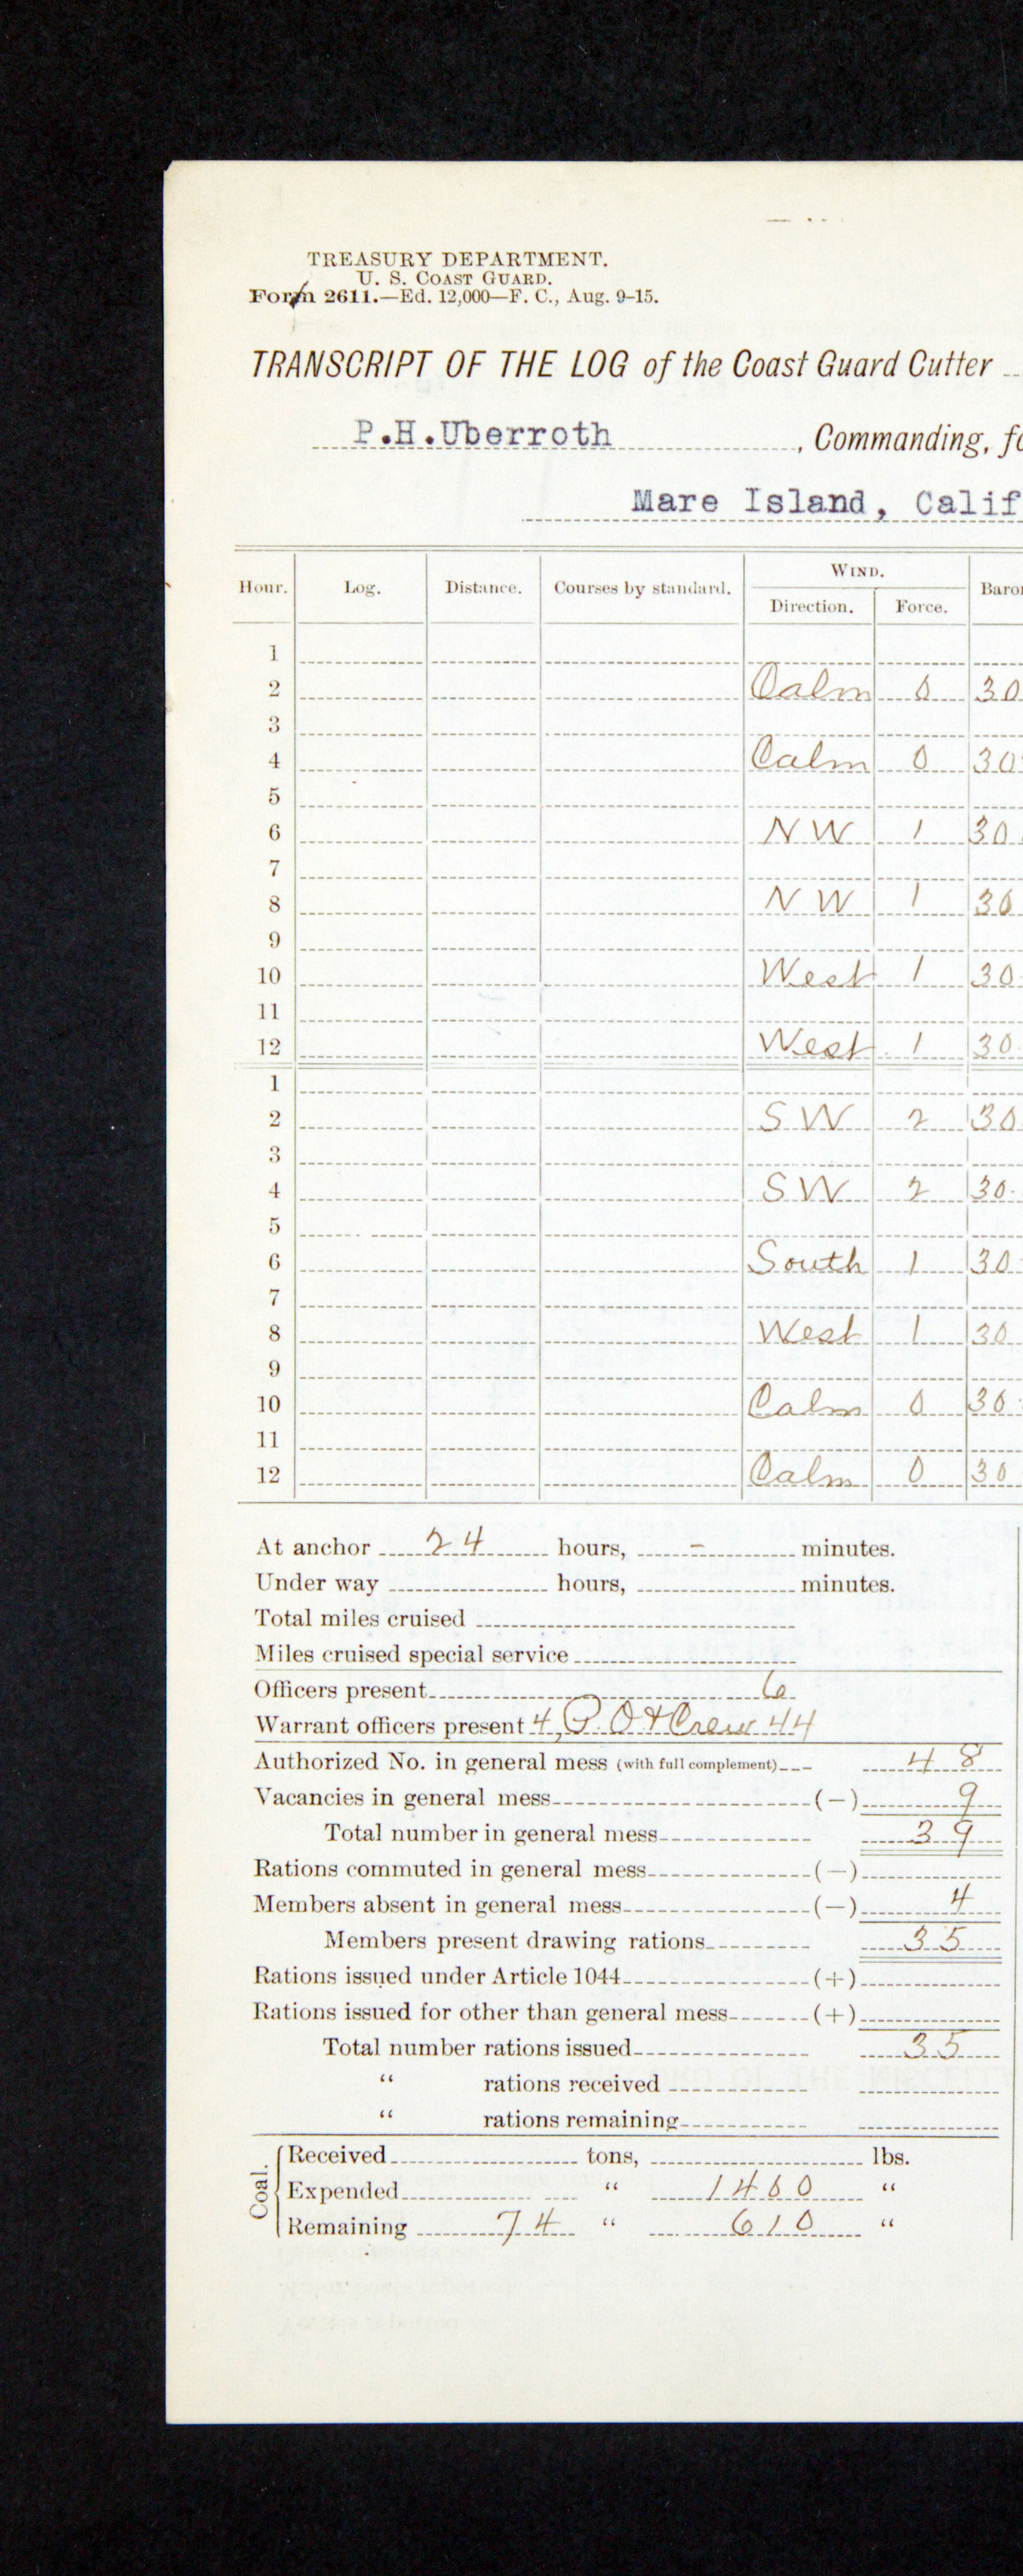 TREASURY DEPARTMENT.
U. S. COAST GUARD.
Form 2611.—Ed. 12,000—F. C., Aug. 9-15.
TRANSCRIPT OF THE LOG of the Coast Guard Cutter
P.H.Uberroth, Commanding,
Mare Island, Calif
Hour. Log. Distance. Courses by standard. WIND. Direction. Force.
1
2 Calm 0 30
3
4 Calm 0 30
5
6 NW 1 30
7
8 NW 1 30
9
10 West 1 30
11
12 West 1 30
1
2 SW 2 30
3
4 SW 2 30
5
6 South 1 30
7
8 West 1 30
9
10 Calm 0 30
11
12 Calm 0 30
At anchor 24 hours, - minutes.
Under way hours, minutes.
Total miles cruised
Miles cruised special service
Officers present 6
Warrant officers present 4, P.O & Crew 44
Authorized No. in general mess (with full complement) 48
Vacancies in general mess (—) 9
Total number in general mess 39
Rations commuted in general mess (—)
Members absent in general mess (—) 4
Members present drawing rations 35
Rations issued under Article 1044 (+)
Rations issued for other than general mess (+)
Total number rations issued 35
“ rations received
“ rations remaining
Coal. Received tons, lbs.
Expended “ 1460 “
Remaining 74 “ 610 “